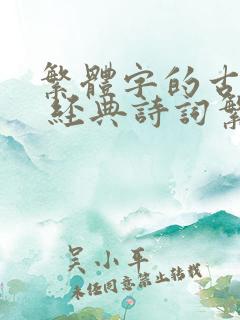 繁體字的古
經典詩詞繁
吳小平
未经同意禁止转载